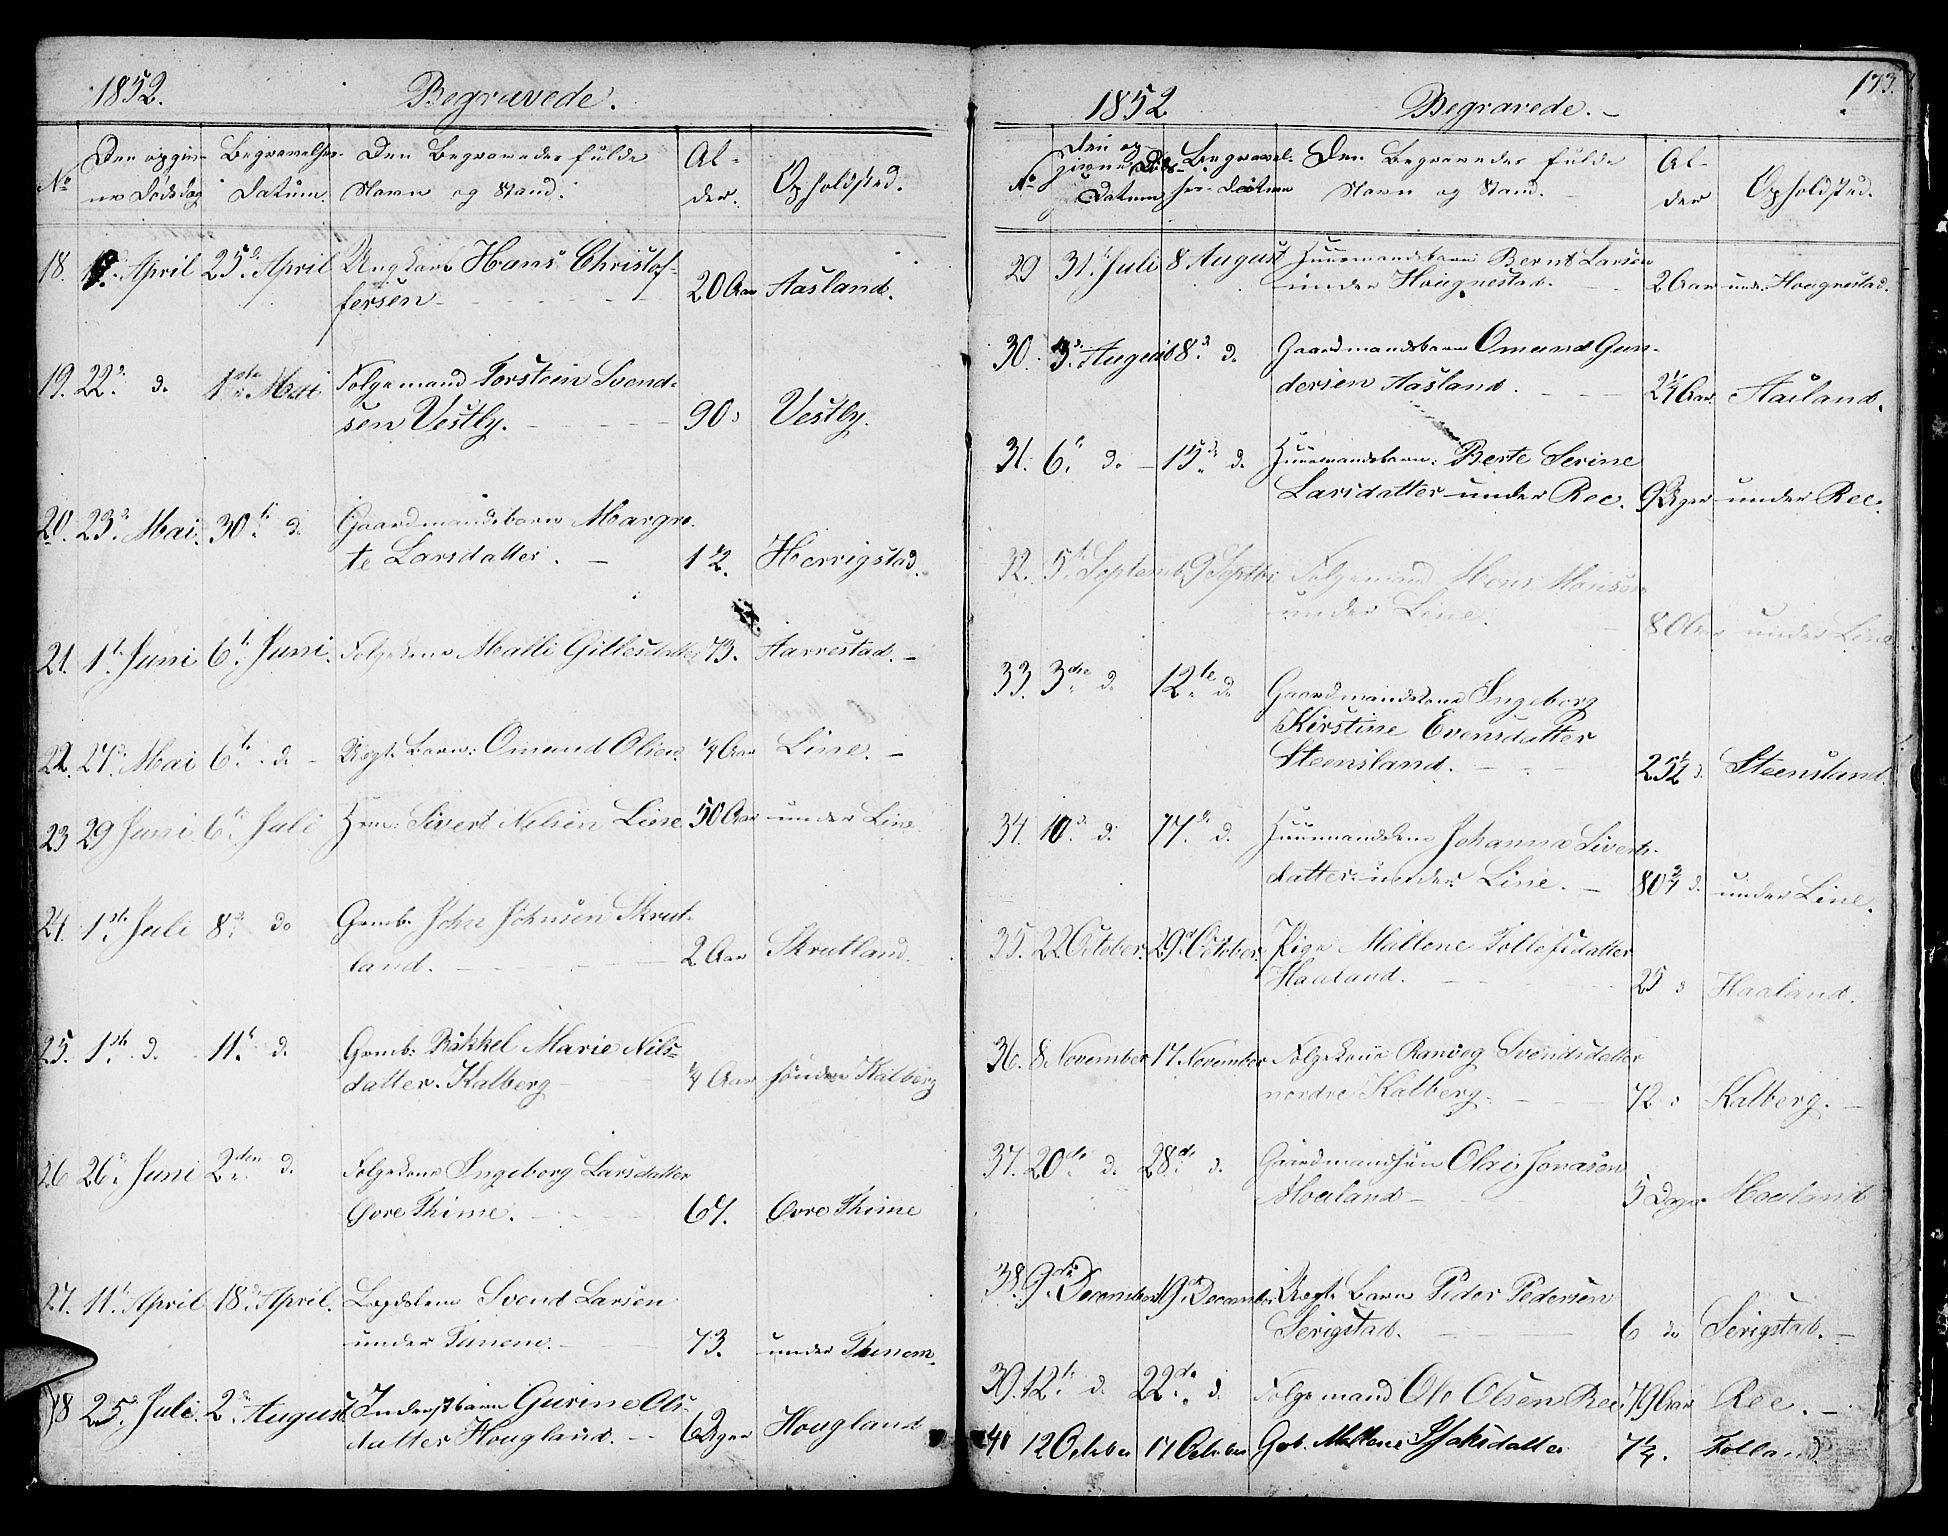 1852.
Begravede.
No
Den opgiv-
ne Dødsdag
Begravelses-
Datum.
Den Begravedes fulde
Navn og Stand.
Al-
der.
Opholdsted.
18. April 25d April Ungkarl Hans Christof-
fersen 20 Aar Aasland.
19. 22d do 1ste Mai Folgemand Torstein Svend-
sen Vestly. 90 " Vestly.
20. 23d Mai. 30te do Gaardmandsbarn Margre-
te Larsdatter. 1 1/2. Herrigstad.
21. 1te Juni 6te Juni. Folgekone Malli Gitlesdatter 73. Aarrestad.
22. 27d Mai 6te do Uegte Barn: Omund Olsen 1/4 Aar Line.
23 29 Juni 6te Juli Hm: Sivert Nilsen Line 50 Aar under Line
24. 1ste Juli 8d do Grmb. John Johnsen Skrut-
land. 2 Aar Skrutland.
25. 1ste d. 11te d. Grmb: Rakkel Marie Nils-
datter. Kalberg 1/4 Aar søndre Kalberg
26 26d Juni 2den d. Folgekone Ingeborg Larsdatter
Øvre Thime. 67. Øvre Thime
27. 11te April 18d April. Lægdslem Svend Larsen
under Tunem. 73. under Thunem.
28 25d Juli. 2den August Inderstbarn Gurine Ols-
datter Hougland. 6 Uger Hougland
173.
1852
Begravede.
No
Den op-
givne Døds-
Datum
Begravel-
ses-Datum
Den Begravedes fulde
Navn og Stand.
Al-
der
Opholdsted.
29 31te Juli 8 August Huusmandsbarn Bernt Larsen
under Hougnestad. 2 Aar under Hougnestad.
30. 3d August 8d d. Gaardmandsbarn Omund Gun-
dersen Aasland. 2 1/4 Aar. Aasland.
31. 6te do 15de d. Huusmandsbarn: Berte Serine
Larsdatter under Ree. 9 Uger under Ree.
32. 5te Septemb 9 Septbr Folgemand Mons Monsen
under Line. 80 Aar under Line
33. 3die d. 12te d. Gaardmandskone Ingeborg
Kirstine Evensdatter
Steensland. 25 1/2 d. Steensland
34. 10d d. 17d d. Huusmandskone Johanna Siverts-
datter under Line. 80 3/4 d. under Line.
35. 22 October. 29d October. Pige Mallene Tollefsdatter
Haaland. 25 " Haaland.
36. 8 November 17 November Folgekone Ranveg Svendsdatter
nordre Kalberg. 72 " Kalberg.
37. 20de d. 28de d. Gaardmandssøn Olai Jonasen
Moeland 5 Dage Moeland
38. 9de December 19d Decembr Uegte Barn Peder Pedersen
Serigstad. 6 do Serigstad.
39. 12te d. 22de d. Folgemand Ole Olsen Ree. 79 Aar Ree.
40 12 October 17 October Gb. Mallene Isaksdatter 7 1/4. Folland